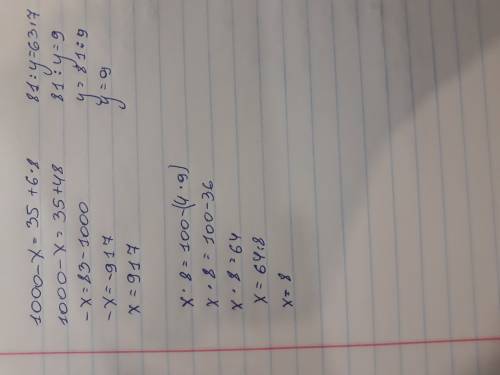 1000-x=35+6·8
1000-x=35+48
-x=83-1000
-x=917
x=917
81:y=63:7
81:y=9
y=81:9
y=9
x·8=100-(4·9)
x·8=100-36
x·8=64
x=64:8
x=8